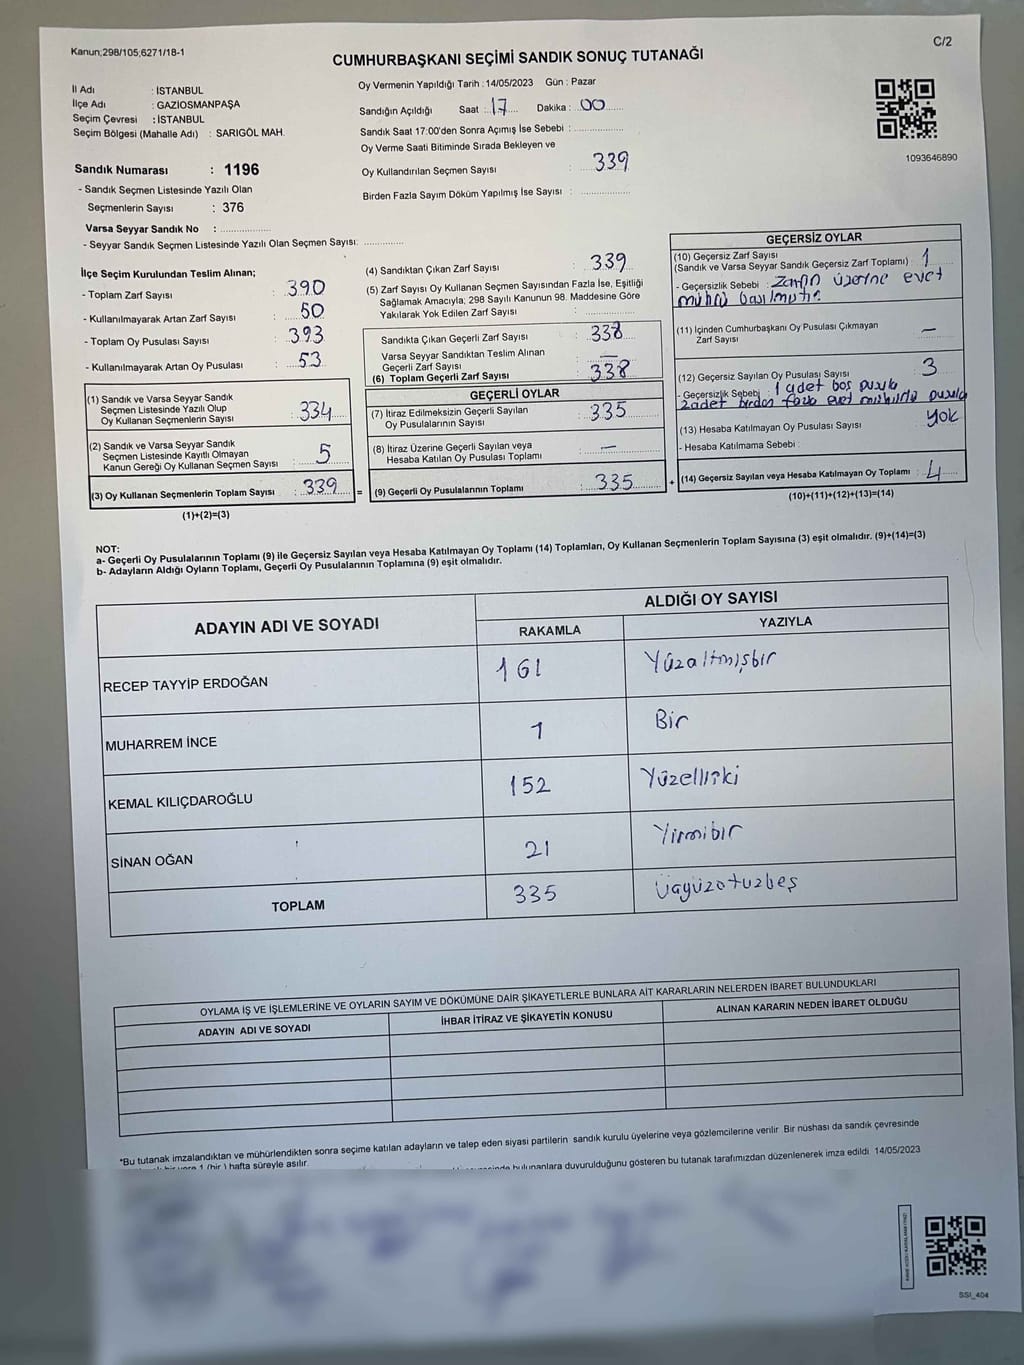 Kanun;298/105;6271/18-1
C/2
CUMHURBAŞKANI SEÇİMİ SANDIK SONUÇ TUTANAĞI
İl Adı : İSTANBUL
İlçe Adı : GAZİOSMANPAŞA
Seçim Çevresi : İSTANBUL
Seçim Bölgesi (Mahalle Adı) : SARIGÖL MAH.
Oy Vermenin Yapıldığı Tarih : 14/05/2023 Gün : Pazar
Sandığın Açıldığı Saat : 17 Dakika : 00
Sandık Saat 17:00'den Sonra Açımış İse Sebebi :
Oy Verme Saati Bitiminde Sırada Bekleyen ve
Oy Kullandırılan Seçmen Sayısı : 339
Birden Fazla Sayım Döküm Yapılmış İse Sayısı :
1093646890
Sandık Numarası : 1196
- Sandık Seçmen Listesinde Yazılı Olan
Seçmenlerin Sayısı : 376
Varsa Seyyar Sandık No :
- Seyyar Sandık Seçmen Listesinde Yazılı Olan Seçmen Sayısı:
İlçe Seçim Kurulundan Teslim Alınan;
- Toplam Zarf Sayısı : 390
- Kullanılmayarak Artan Zarf Sayısı : 50
- Toplam Oy Pusulası Sayısı : 393
- Kullanılmayarak Artan Oy Pusulası : 53
(1) Sandık ve Varsa Seyyar Sandık
Seçmen Listesinde Yazılı Olup
Oy Kullanan Seçmenlerin Sayısı : 334
(2) Sandık ve Varsa Seyyar Sandık
Seçmen Listesinde Kayıtlı Olmayan
Kanun Gereği Oy Kullanan Seçmen Sayısı : 5
(3) Oy Kullanan Seçmenlerin Toplam Sayısı : 339 =
(1)+(2)=(3)
(4) Sandıktan Çıkan Zarf Sayısı : 339
(5) Zarf Sayısı Oy Kullanan Seçmen Sayısından Fazla İse, Eşitliği
Sağlamak Amacıyla; 298 Sayılı Kanunun 98. Maddesine Göre
Yakılarak Yok Edilen Zarf Sayısı :
Sandıkta Çıkan Geçerli Zarf Sayısı : 338
Varsa Seyyar Sandıktan Teslim Alınan
Geçerli Zarf Sayısı : —
(6) Toplam Geçerli Zarf Sayısı : 338
GEÇERLİ OYLAR
(7) İtiraz Edilmeksizin Geçerli Sayılan
Oy Pusulalarının Sayısı : 335
(8) İtiraz Üzerine Geçerli Sayılan veya
Hesaba Katılan Oy Pusulası Toplamı : —
(9) Geçerli Oy Pusulalarının Toplamı : 335 +
GEÇERSİZ OYLAR
(10) Geçersiz Zarf Sayısı
(Sandık ve Varsa Seyyar Sandık Geçersiz Zarf Toplamı) : 1
- Geçersizlik Sebebi : Zarfın üzerine evet
mührü basılmıştır.
(11) İçinden Cumhurbaşkanı Oy Pusulası Çıkmayan
Zarf Sayısı —
(12) Geçersiz Sayılan Oy Pusulası Sayısı 3
- Geçersizlik Sebebi : 1 adet boş pusula
2 adet birden fazla evet mühürlü pusula
(13) Hesaba Katılmayan Oy Pusulası Sayısı yok
- Hesaba Katılmama Sebebi :
(14) Geçersiz Sayılan veya Hesaba Katılmayan Oy Toplamı : 4
(10)+(11)+(12)+(13)=(14)
NOT:
a- Geçerli Oy Pusulalarının Toplamı (9) ile Geçersiz Sayılan veya Hesaba Katılmayan Oy Toplamı (14) Toplamları, Oy Kullanan Seçmenlerin Toplam Sayısına (3) eşit olmalıdır. (9)+(14)=(3)
b- Adayların Aldığı Oyların Toplamı, Geçerli Oy Pusulalarının Toplamına (9) eşit olmalıdır.
ADAYIN ADI VE SOYADI
ALDIĞI OY SAYISI
RAKAMLA YAZIYLA
RECEP TAYYİP ERDOĞAN 161 Yüzaltmışbir
MUHARREM İNCE 1 Bir
KEMAL KILIÇDAROĞLU 152 Yüzelliiki
SİNAN OĞAN 21 Yirmibir
TOPLAM 335 Üçyüzotuzbeş
OYLAMA İŞ VE İŞLEMLERİNE VE OYLARIN SAYIM VE DÖKÜMÜNE DAİR ŞİKAYETLERLE BUNLARA AİT KARARLARIN NELERDEN İBARET BULUNDUKLARI
ADAYIN ADI VE SOYADI İHBAR İTİRAZ VE ŞİKAYETİN KONUSU ALINAN KARARIN NEDEN İBARET OLDUĞU
*Bu tutanak imzalandıktan ve mühürlendikten sonra seçime katılan adayların ve talep eden siyasi partilerin sandık kurulu üyelerine veya gözlemcilerine verilir Bir nüshası da sandık çevresinde
1 (bir ) hafta süreyle asılır.
bulunanlara duyurulduğunu gösteren bu tutanak tarafımızdan düzenlenerek imza edildi 14/05/2023
SSI_404